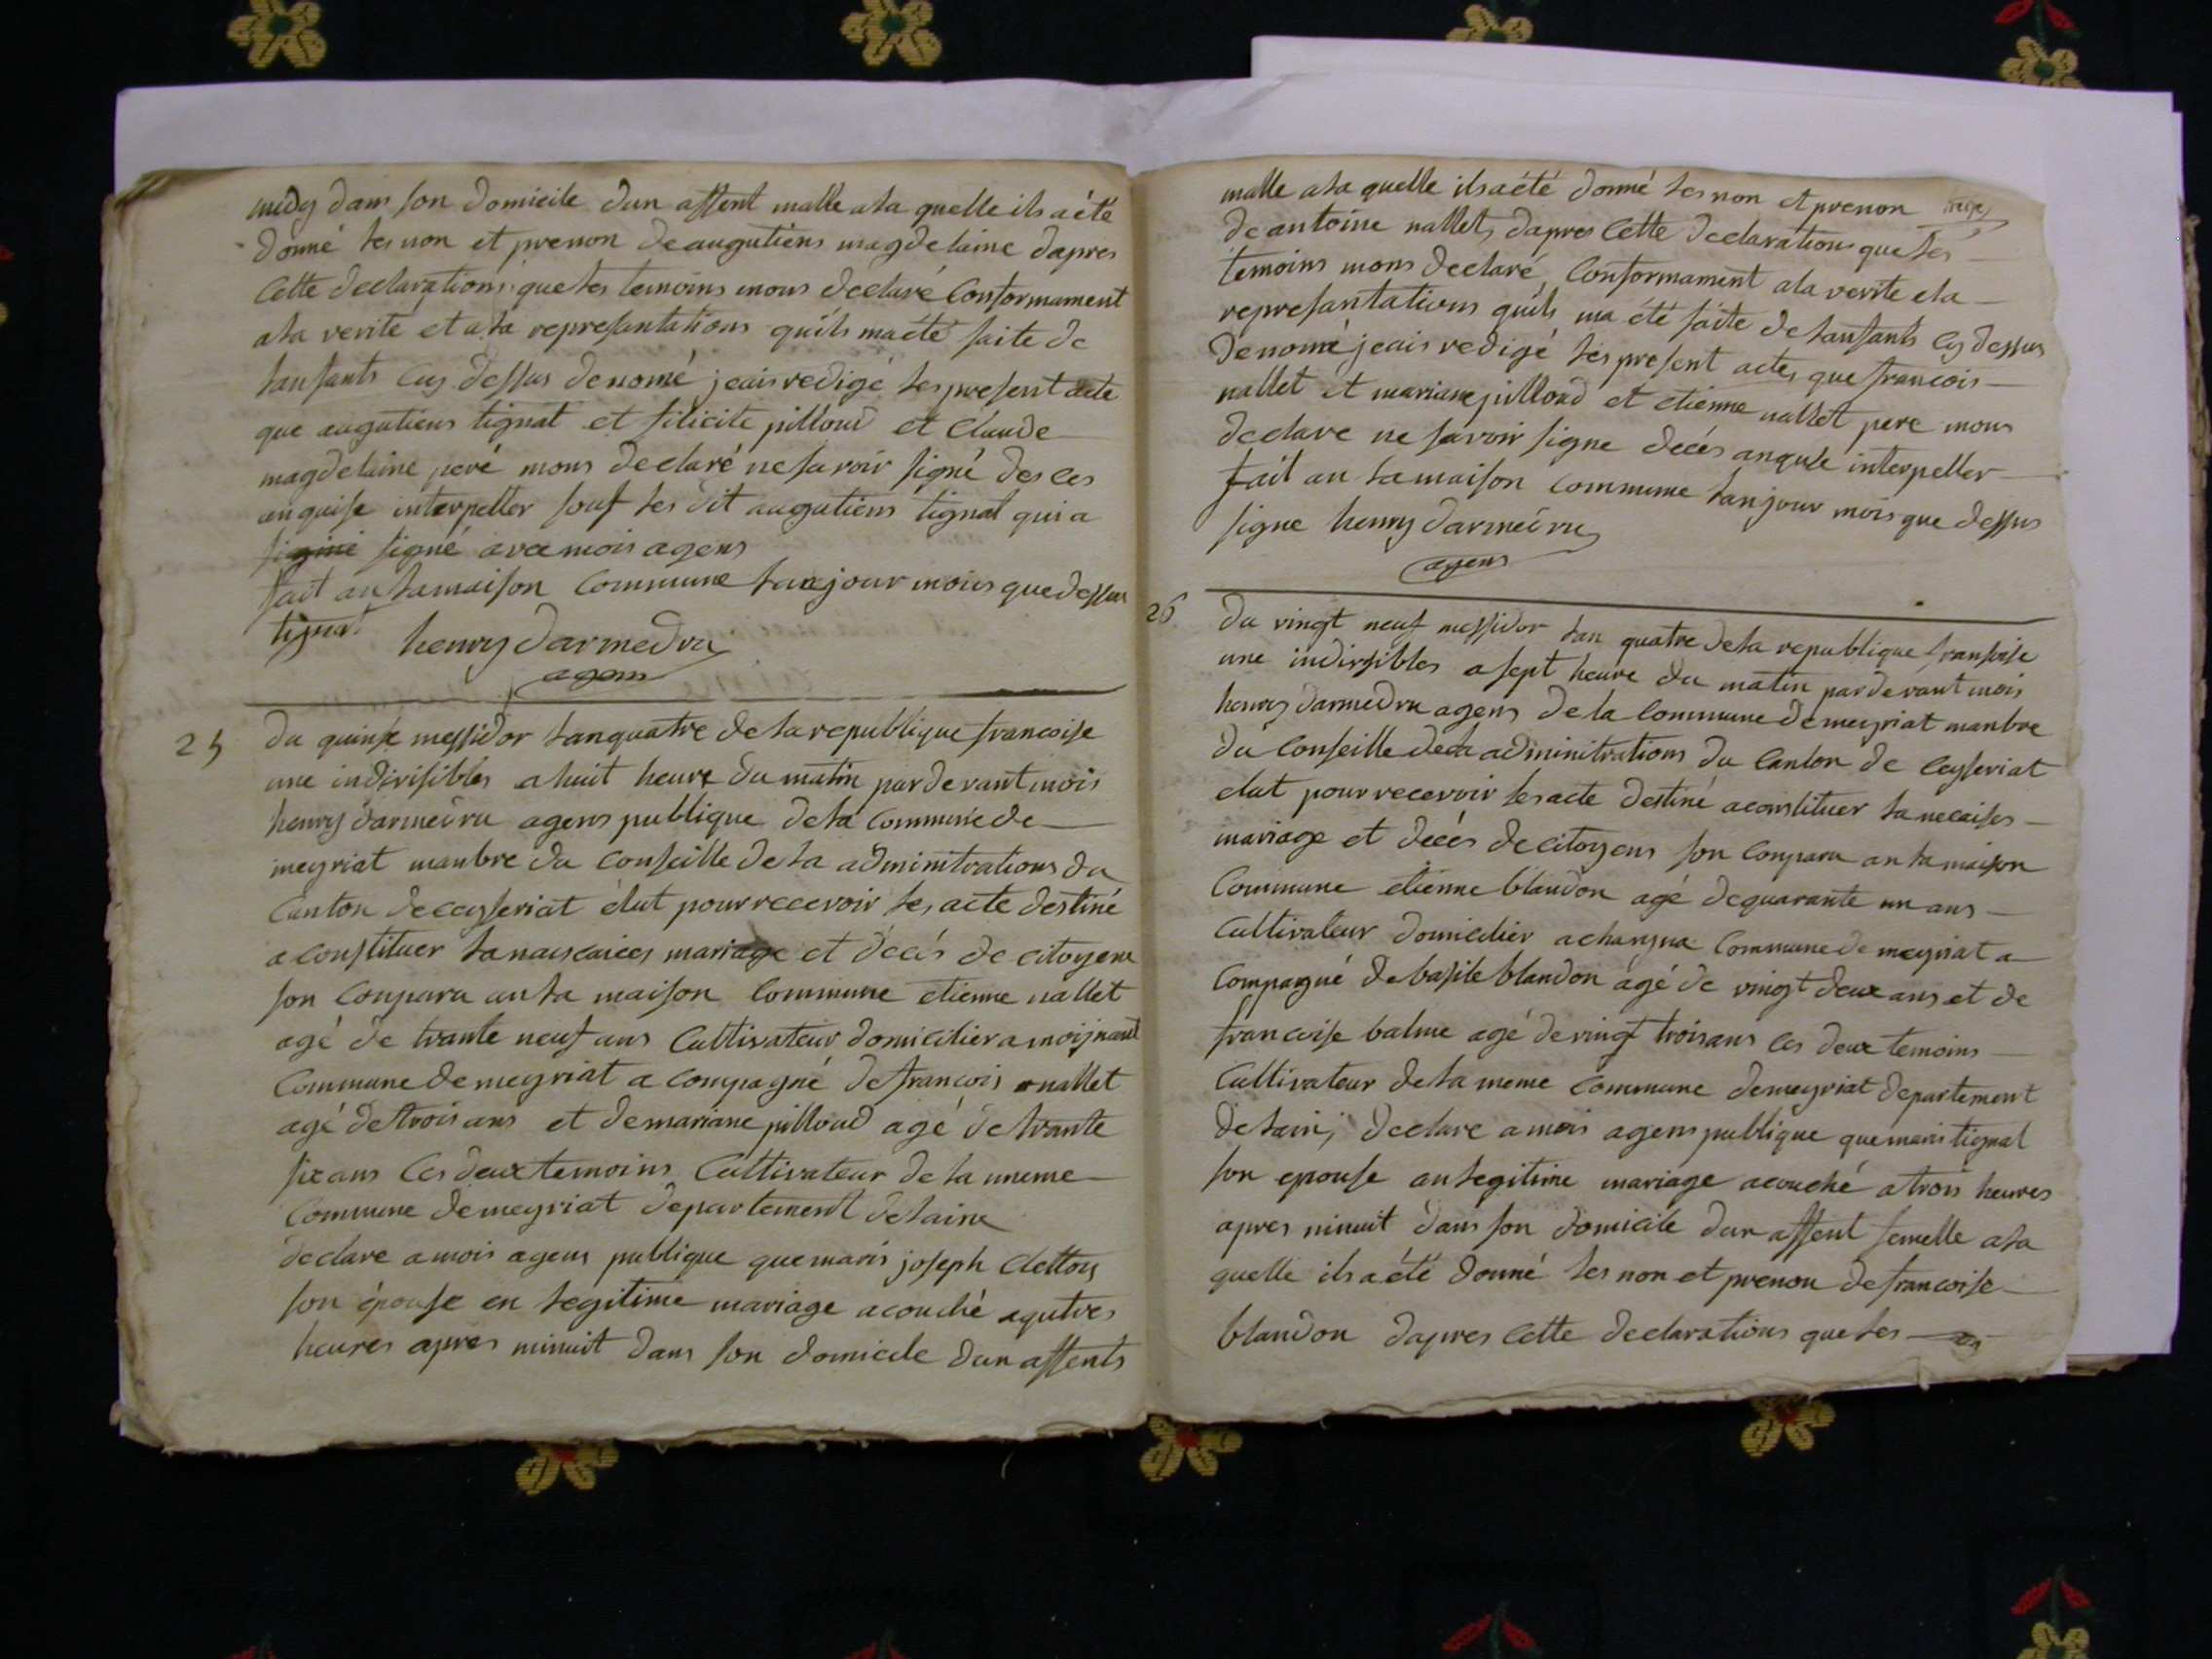 midy dans son domicile dun assent malle a la quelle ils a été
donné les non et prenon de augutiens magdelaine dapres
Cette declarations que les temoins mons declaré Conformament
a la verite et a la represantations quils ma été faite de
lansants Cy dessus denomé jeais redigé les present acte
que augutiens tignat et filicite pilloud et Claude
magdelaine peré mons declaré ne savoir signé des ces
anquise interpeller souf les dit augutiens tignat qui a
signé avec mois agens
fait an la maison Commune lan jour mois que dessus
tignat henry darmedru
agens
25 du quinse messidor lan quatre de la republique francoise
une indivisibles a huit heure du matin par devant mois
henry darmedru agens publique de la Commune de
meyriat manbre du Conseille de la adminitrations du
Canton de ceyseriat élut pour recevoir les acte destiné
a Constituer la naiscaices mariage et décés de citoyens
son Conparu an la maison Commune etienne nallet
agé de trante neuf ans Cultivateur domicilier a moijnant
Commune de meyriat a conpagné de francois nallet
agé de trois ans et de mariane pilloud agé de trante
six ans les deux temoins Cultivateur de la meme
Commune de meyriat departement de laine
declare a mois agens publique que maris joseph Clettoy
son épouse en legitime mariage acouché a qutres
heures apres minuit dans son domicile dun assents
malle a la quelle ils a été donné les non et prenon
de antoine nallet, dapres Cette declarations que les
temoins mons declaré, Conformament a la verite et a
represantations quils ma été faite de lansants Cy dessus
denomé jeais redigé les present actes que francois
nallet et mariane pilloud et etienne nallet pere mons
declare ne savoir signe decés anquse interpeller
fait an la maison Commune lan jour mois que dessus
signe henry darmedru
agens
26 du vingt neuf messidor lan quatre de la republique fransoise
une indivisibles a sept heure du matin par devant mois
henry darmedru agens de la Commune de meyriat manbre
du Conseille de la adminitrations du Canton de Ceyseriat
elut pour recevoir les acte destiné a constituer la necaises
mariage et décés de citoyens son Conparu an la maison
Commune etienne blandon agé de quarante un ans
Cultivateur domicilier a charyna Commune de meyriat a
Compagné de basile blandon agé de vingt deux ans et de
francoise balme agé de vingt trois ans les deux temoins
Cultivateur de la meme Commune de meyriat departement
de lain, declare a mois agens publique que maris tignat
son epouse an legitime mariage acouché a trois heures
apres minuit dans son domicile dun assent femelle a la
quelle ils a été donné les non et prenon de francoise
blandon dapres Cette declarations que les